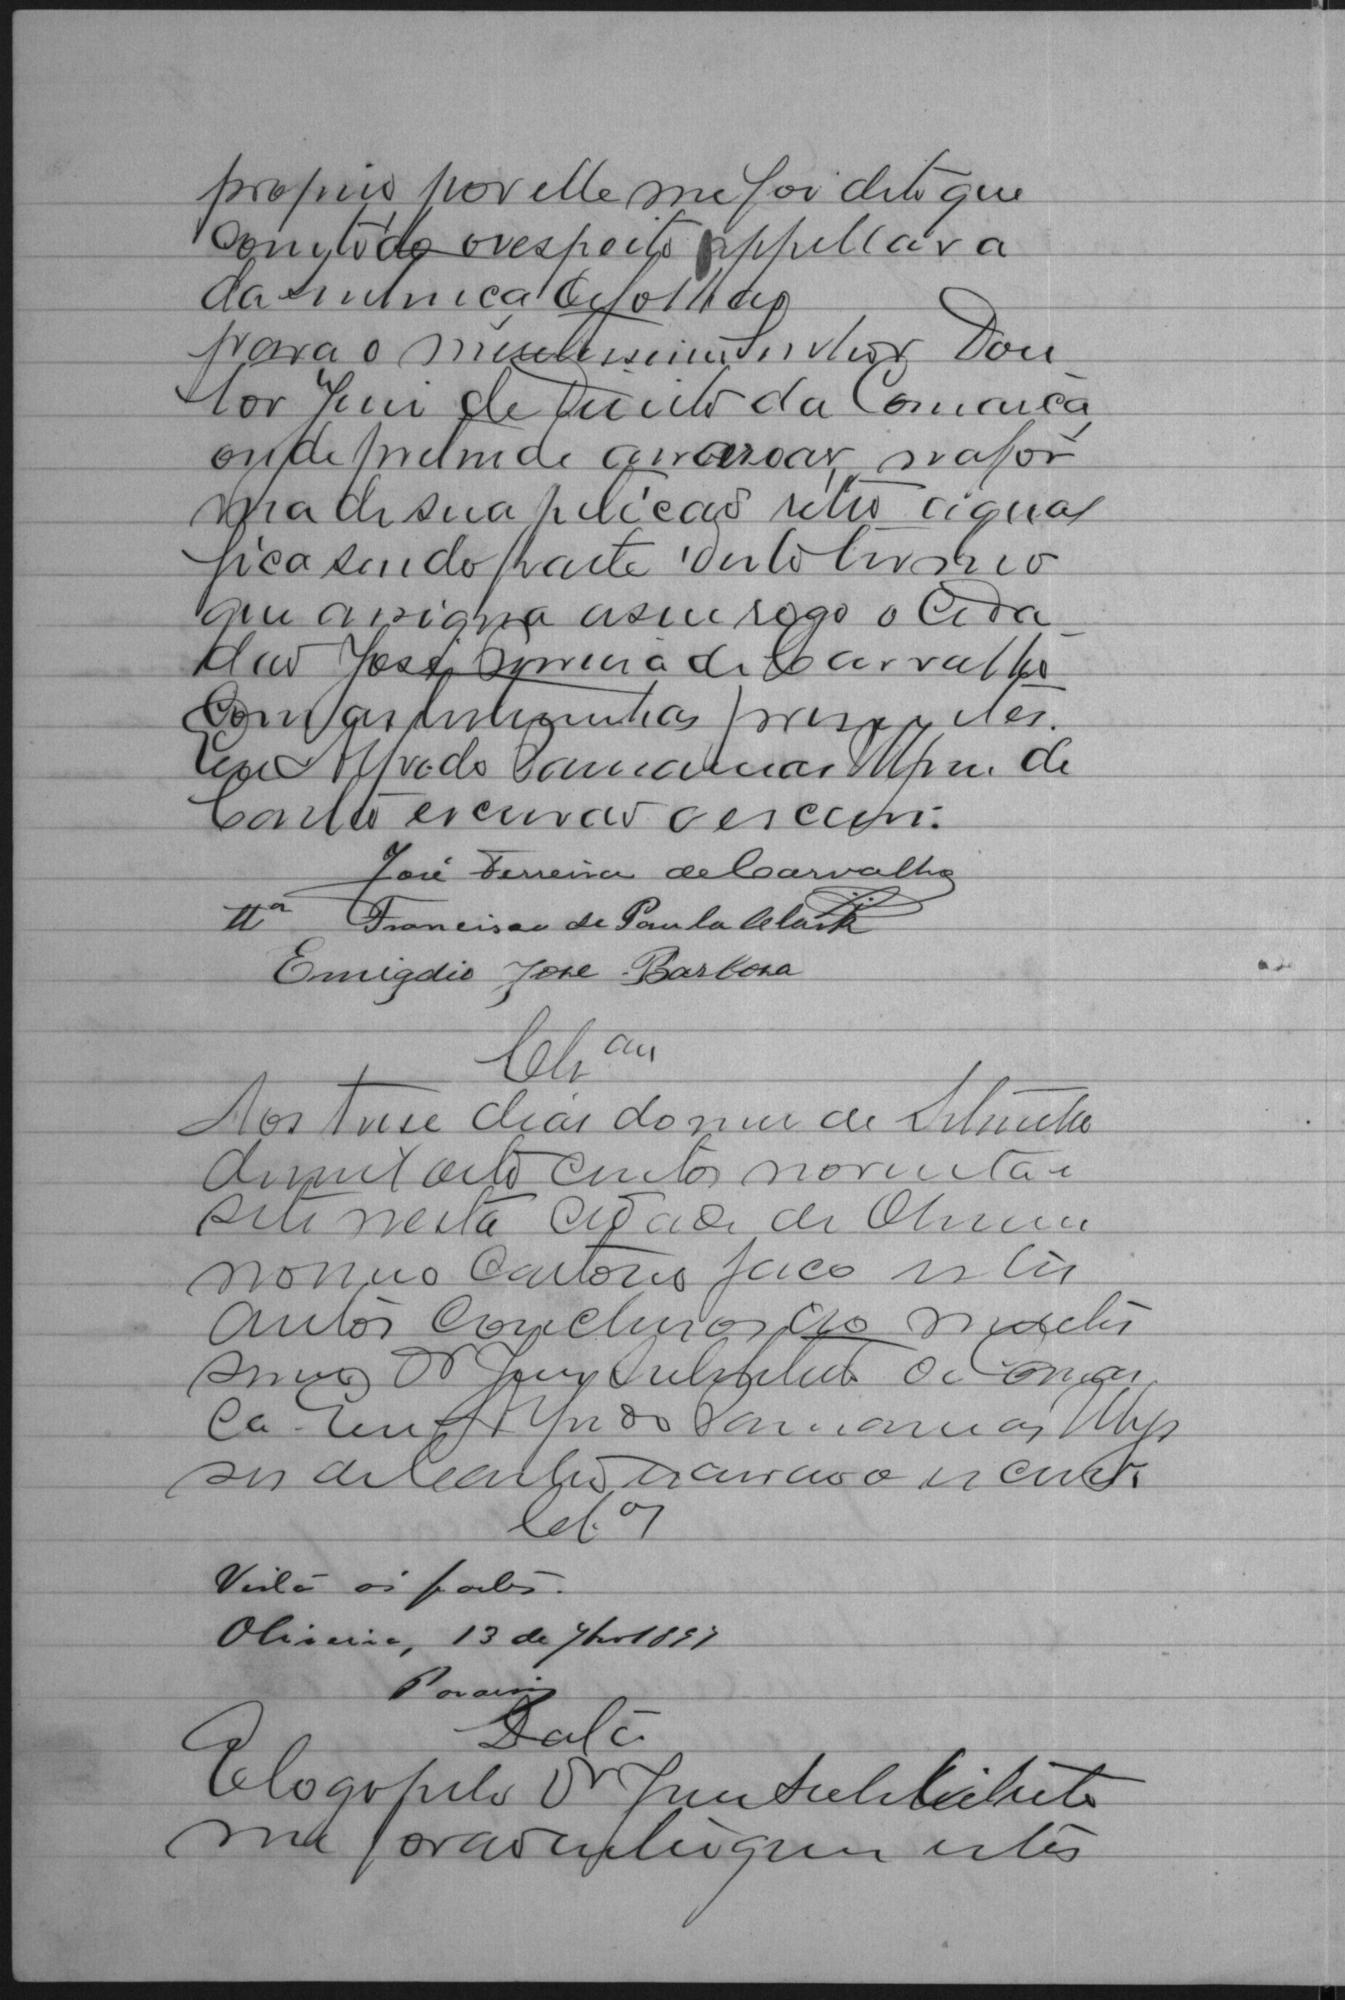 proprio por elle me foi dito que
com todo o respeito appellava
da sentença de folhas
para o meretissimo Senhor Dou
tor Juiz de Direito da Comarca,
onde pretende arrazoar, na for
ma de sua petição retro a qual
fica sendo parte deste termo
que assigna a seu rogo o Cida
dão José Ferreira de Carvalho
com as testemunhas presentes.
Eu Alfredo Cannameas Ulysses de
Castro escrivão o escrevi.
José Ferreira de Carvalho
tta Francisco de Paula
Emigdio José Barbosa
Clsam
Aos trese dias do mes de Setembro
de mil oito centos noventa e
sete nesta Cidade de Oliveira
no meu Cartorio faço estes
autos conclusos ao meretis
simo Dr Juiz Substituto da Comar
ca. Eu Alfredo Ulys
ses de Castro escrivão o escrevi.
Clsos
Vista ás partes.
Oliveira, 13 de 7bro 1897
Data
E logo pelo Dr Juiz Substituto
me forão entregues estes